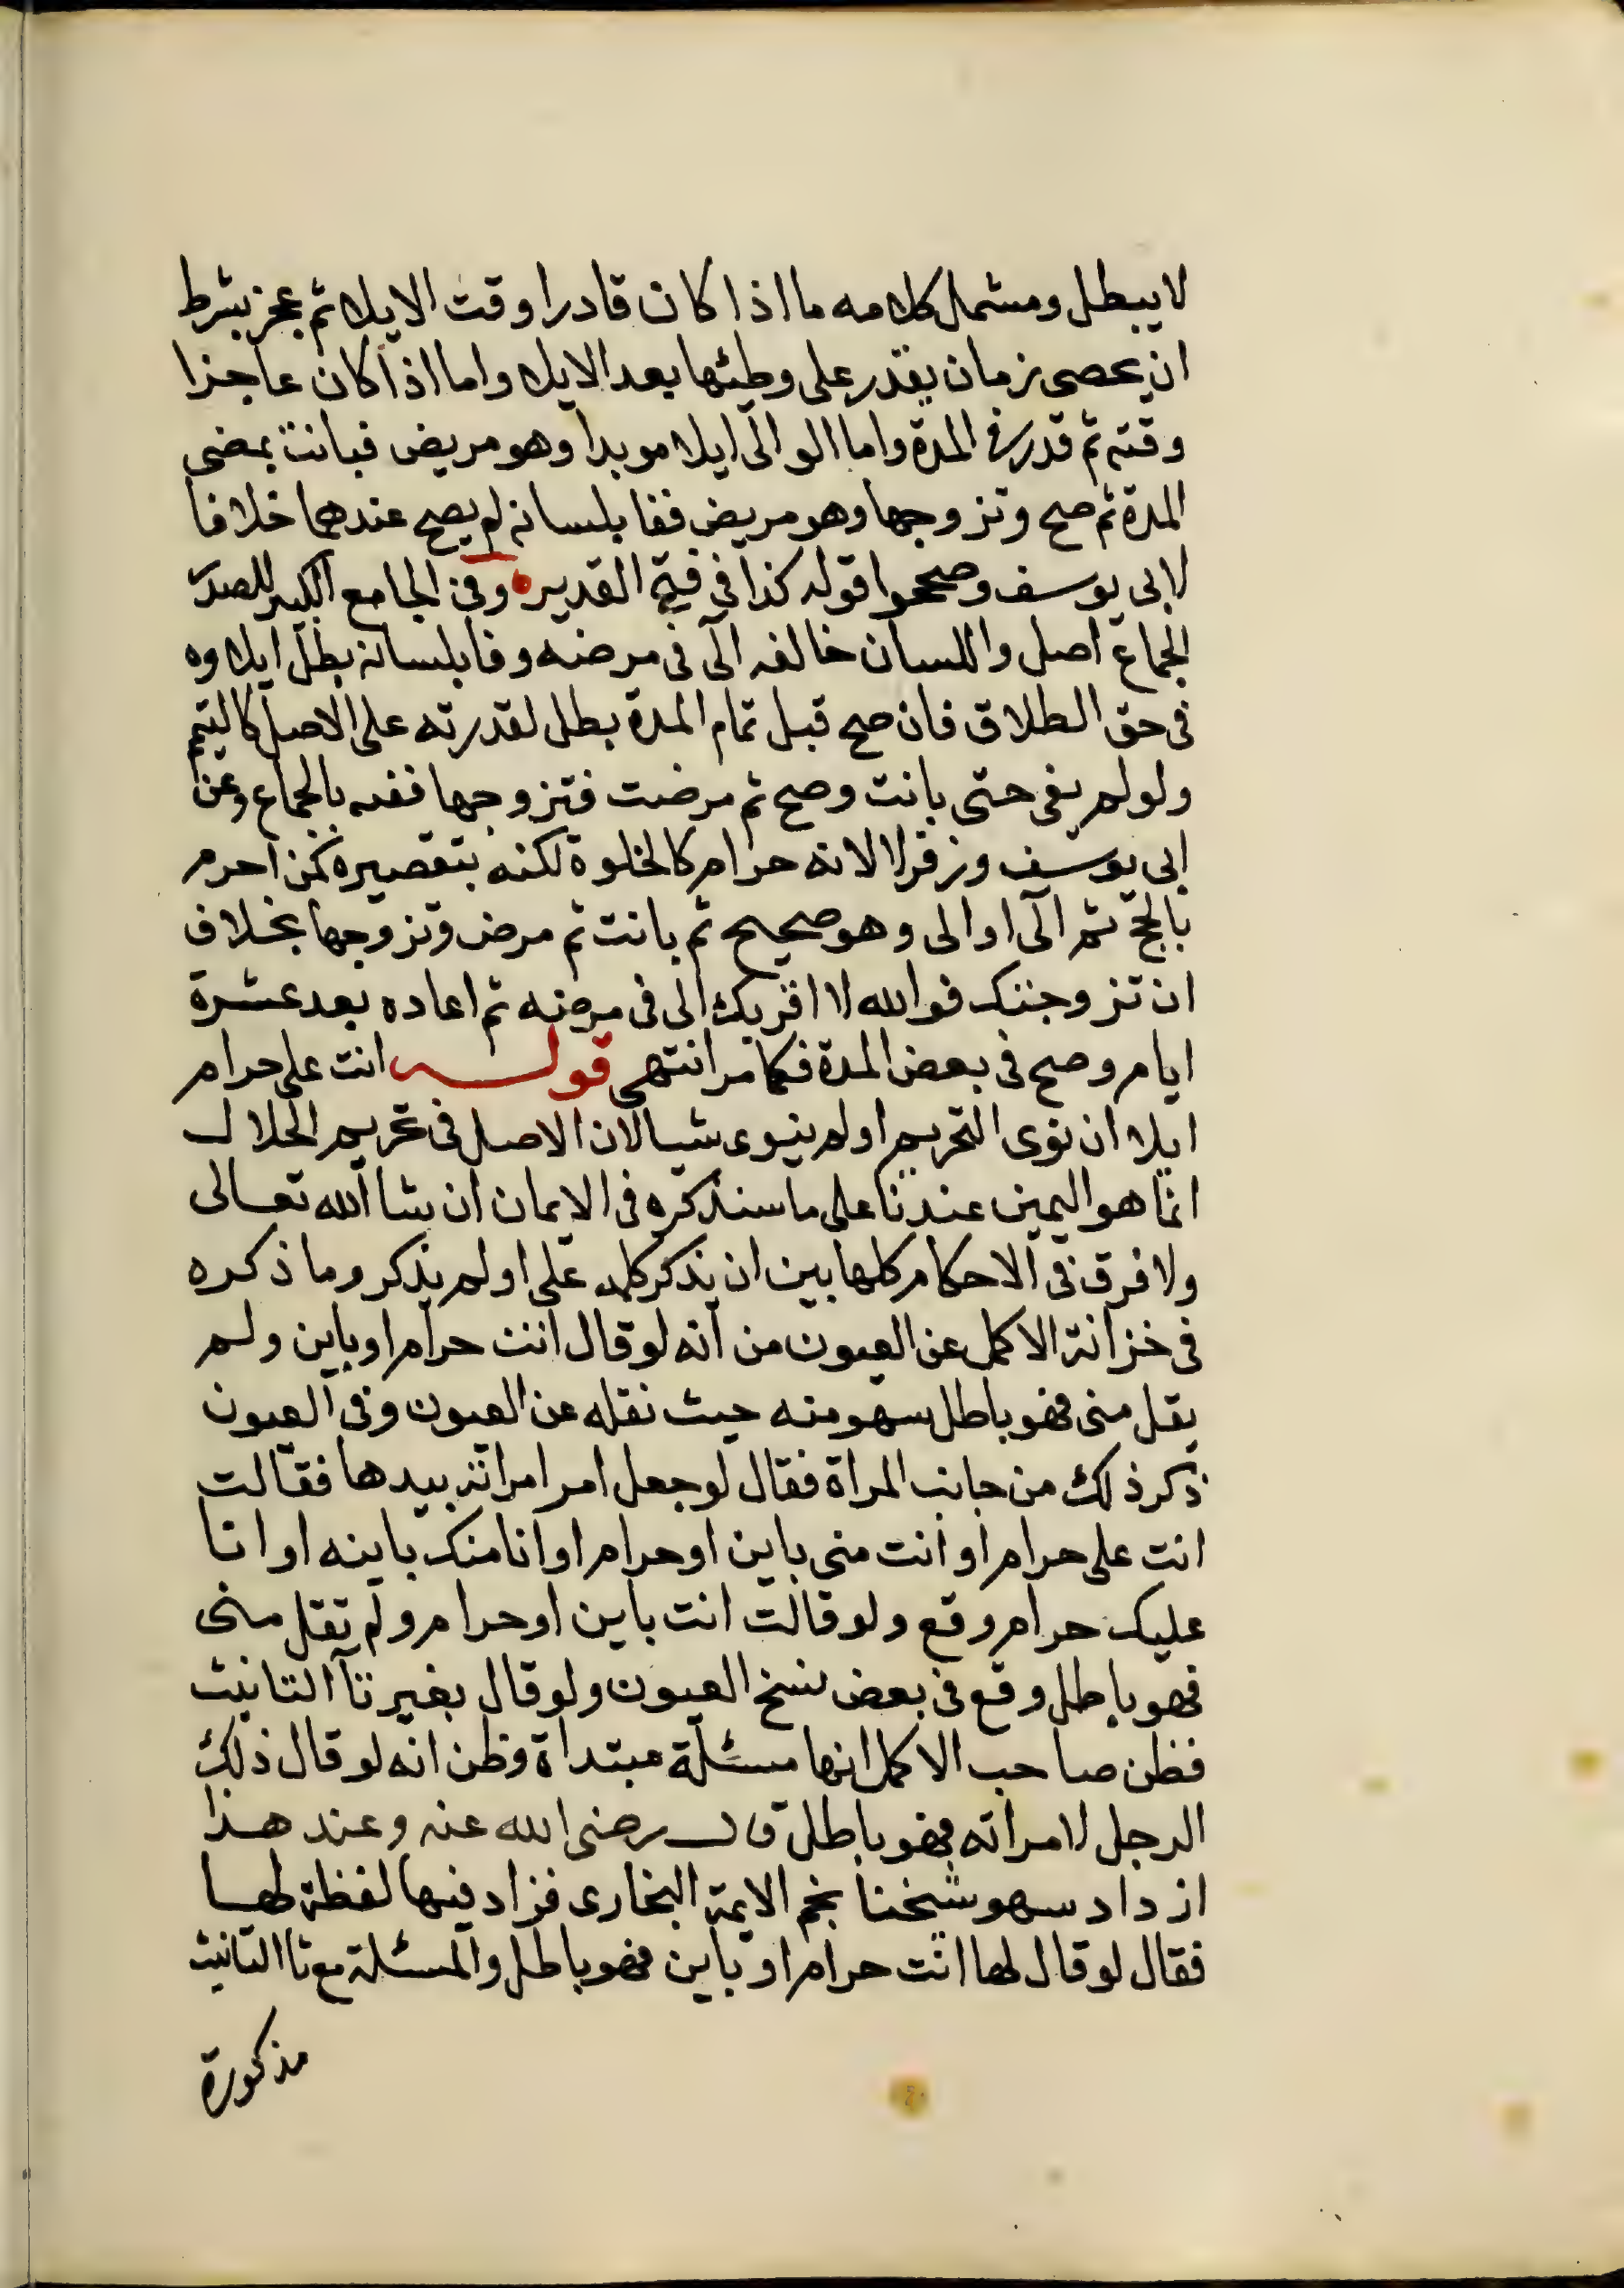 لا يبطل ومشمل كلامه ما اذا كان قادرا وقت الايلا ثم عجز بشرط
ان يمضى زمان يقدر على وطئها بعد الايلا واما اذا كان عاجزا
وقته ثم قدر فى المدة واما الو الى ايلا موبدا وهو مريض فبانت بمضى
المدة ثم صح وتزوجها وهو مريض ففا بلسانه لم يصح عندهما خلافا
لابى يوسف وصححوا قوله كذا فى فتح القدير وفى الجامع الكبير للصدر
الجماع اصل واللسان خالفه الى فى مرضه وفا بلسانه بطل ايلاوه
فى حق الطلاق فان صح قبل تمام المدة بطل لقدرته على الاصل كالتيمم
ولو لم يفى حتى بانت وصح ثم مرضت فتزوجها ففيه بالجماع وعن
ابى يوسف وزفر لا لانه حرام كالخلوة لكنه بتقصيره كمن احرم
بالحج ثم الى او الى وهو صحيح ثم بانت ثم مرض وتزوجها بخلاف
ان تزوجتك فوالله لا اقربك الى فى مرضه ثم اعاده بعد عشرة
ايام وصح فى بعض المدة فكما مر انتهى قوله انت على حرام
ايلا ان نوى التحريم او لم ينوى شيا لان الاصل فى تحريم الحلال
انما هو اليمين عندنا على ما سنذكره فى الايمان ان شا الله تعالى
ولا فرق فى الاحكام كلها بين ان يذكر كلمه على او لم يذكر وما ذكره
فى خزانة الاكمل عن العيون من انه لو قال انت حرام او باين ولم
يقل منى فهو باطل سهو منه حيث نقله عن العيون وفى العيون
ذكر ذلك من جانب المراة فقال لو جعل امر امراته بيدها فقالت
انت على حرام او انت منى باين او حرام او انا منك باينه او انا
عليك حرام وقع ولو قالت انت باين او حرام ولم تقل منى
فهو باطل وقع فى بعض نسخ العيون ولو قال بغير تآ التانيث
فظن صاحب الاكمل انها مسئلة مبتداة وظن انه لو قال ذلك
الرجل لامراته فهو باطل قال رضى الله عنه وعند هذا
ازداد سهو شيخنا نجم الايمة البخارى فزاد فيها لفظة لها
فقال لو قال لها انت حرام او باين فهو باطل والمسئلة مع تا التانيث
مذكورة